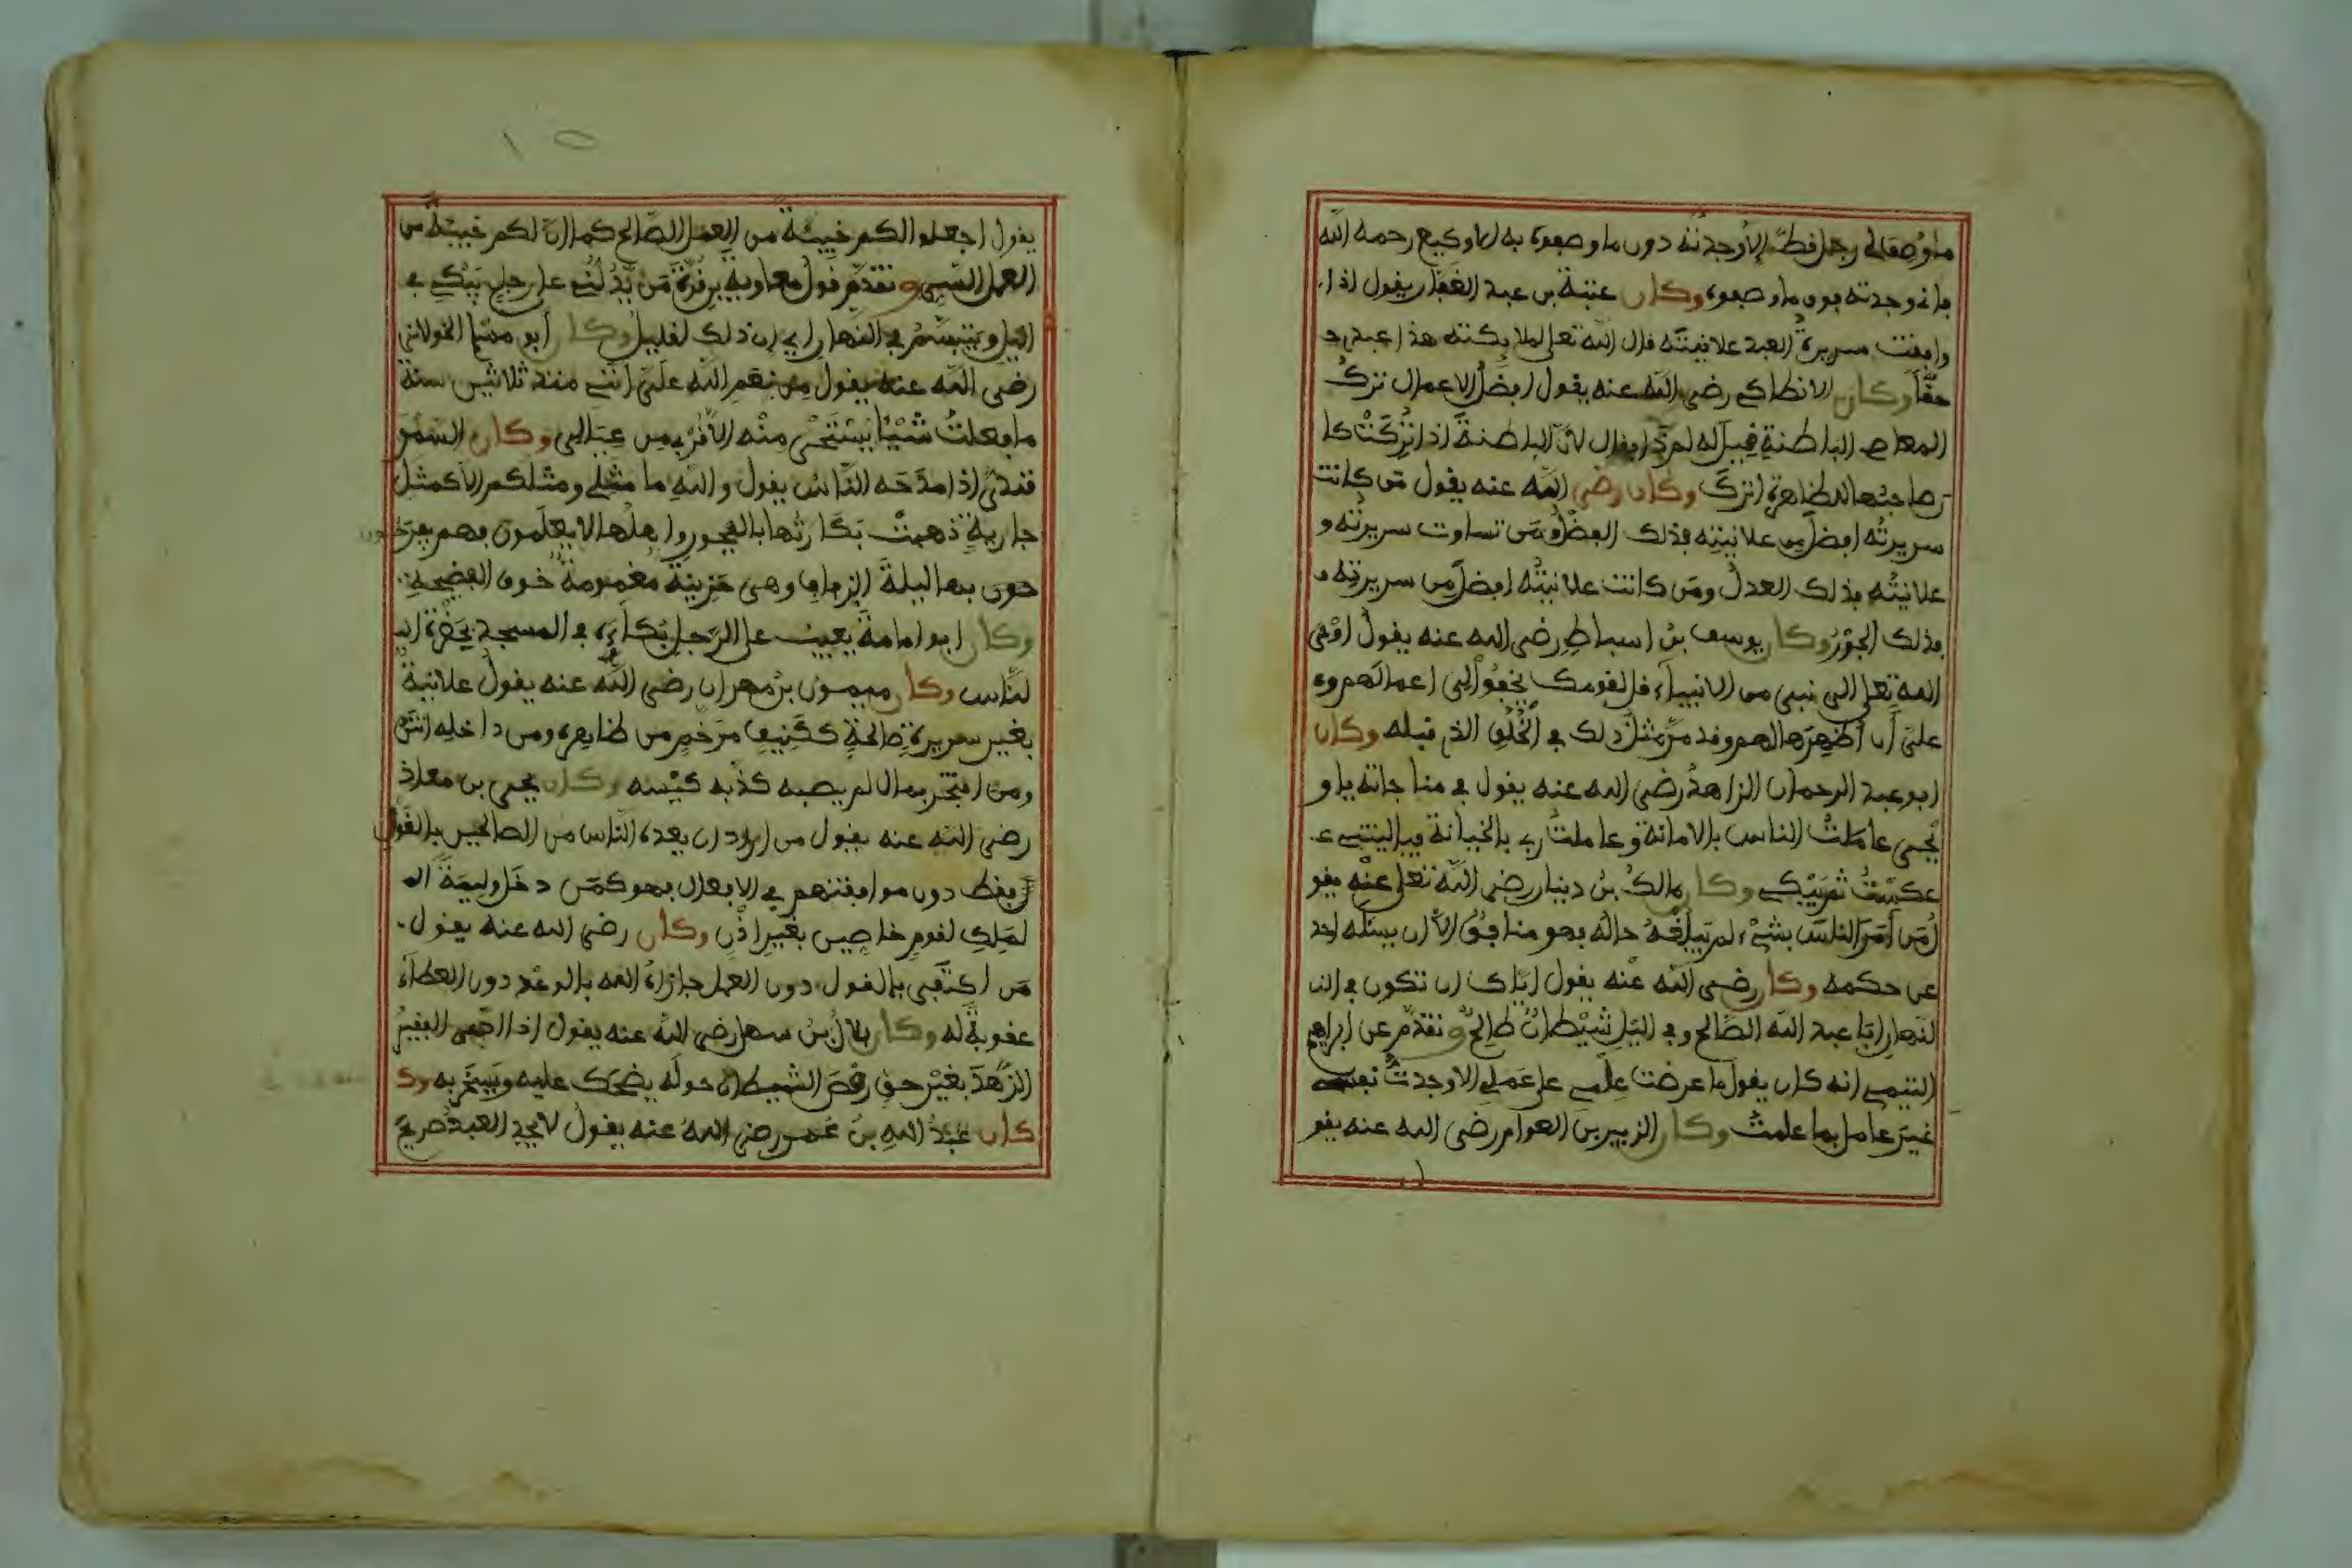 ما وُصف لي رجل قط إلا وجدته دون ما وصفوه به إلا وكيع رحمه الله
فإني وجدته فوق ما وصفوه وكان عتبة بن عبد الغفار يقول إذا
وافقت سريرة العبد علانيته قال الله تعلى لملايكته هذا عبدي
حقًّا وكان الانطاكي رضي الله عنه يقول افضل الاعمال ترك
المعاصي الباطنة فقيل له لم ذا فقال لان الباطنة إذا تُركت كا
ن صاحبها للظاهرة اترك وكان رضي الله عنه يقول من كانت
سريرته افضل من علانيته فذلك الفضل ومن تساوت سريرته و
علانيته فذلك العدل ومن كانت علانيته افضل من سريرته
فذلك الجور وكان يوسف بن اسباط رضي الله عنه يقول اوحى
الله تعلى الى نبي من الانبياء قل لقومك يخفوا لي اعمالهم و
علي أن أظهرها لهم وقد مر مثل ذلك في الخلق الذي قبله وكان
ابو عبد الرحمان الزاهد رضي الله عنه يقول في مناجاته يا و
يحي عاملت الناس بالامانة وعاملت ربي بالخيانة فيا ليتني
عكست ثم يبكي وكان مالك بن دينار رضي الله تعلى عنه يقو
ل من أمر الناس بشيء لم يبلغه حاله فهو منافق الا ان يسئله احد
عن حكمه وكان رضي الله عنه يقول اياك ان تكون في الن
لنهار ابا عبد الله الصالح وفي الليل شيطان طالح وتقدم عن ابراهيم
التيمي انه كان يقول ما عرضت علمي على عملي الا وجدت نفسي
غير عامل بما علمت وكان الزبير بن العوام رضي الله عنه يقو
١٥
يقول اجعلوا لكم خبيئة من العمل الصالح كما ان لكم خبيئة من
العمل السيي وتقدم قول معاوية بن قرة من يدلني على رجل يبكي في
الليل ويتبسم في النهار اي ان ذلك لقليل وكان أبو مسلم الخولاني
رضي الله عنه يقول من نعم الله علي انني منذ ثلاثين سنة
ما فعلت شيئا يستحى منه الا قربي من عيالي وكان السمر
قندي إذا مدحه الناس يقول والله ما مثلي ومثلكم الا كمثل
جارية ذهبت بكارتها بالفجور واهلها لا يعلمون فهم يفرحون
حون بها ليلة الزفاف وهي حزينة مغمومة خوف الفضيحة
وكان ابو امامة يعيب على الرجل بكاءه في المسجد بحضرة ا
لناس وكان ميمون بن مهران رضي الله عنه يقول علانية
بغير سريرة صالحة ككنيف مزخرف من ظاهره ومن داخله انتن
ومن افتخر بمال لم يصبه كذبه كيسه وكان يحيى بن معاذ
رضي الله عنه يقول من اراد ان يعده الناس من الصالحين بالقول
فقط دون موافقتهم في الافعال فهو كمن دخل وليمة ال
لملك لقوم خاصين بغير اذن وكان رضي الله عنه يقول
من اكتفى بالقول دون العمل جازاه الله بالوعد دون العطاء
عقوبة له وكان بلال بن سعد رضي الله عنه يقول إذا ادعى الفقير
الزهد بغير حق رقص الشيطان حوله يضحك عليه ويسخر به وك
كان عبد الله بن عمر رضي الله عنه يقول لا يجد العبد صريح